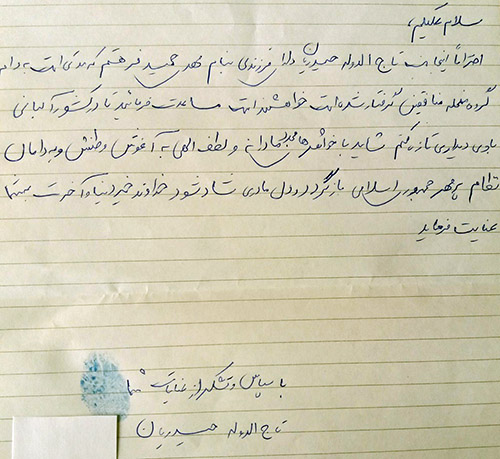 سلام علیکم،
احتراماً اینجانب تاج الدوله حیدریان دارای فرزندی بنام مهدی حمیدفر هستم که مدتی است به دام
گروه منافقین گرفتار شده است خواهشمند است مساعدت فرمائید تا در کشور آلبانی
با وی دیداری تازه کنم شاید با خواهش‌های و لطف الهی به آغوش وطنش و به دامان
نظام پر مهر جمهوری اسلامی بازگردد و دل مادری شاد شود خداوند خیر دنیا و آخرت به شما
عنایت فرماید
با سپاس و تشکر از عنایات شما
تاج الدوله حیدریان